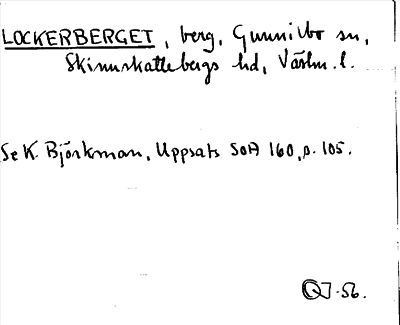 LOCKERBERGET, berg, Gunnilbo sn,
Skinnskattebergs hd, Västm. l.
Se K. Björkman, Uppsats SOÄ 160, s. 105.
-56.